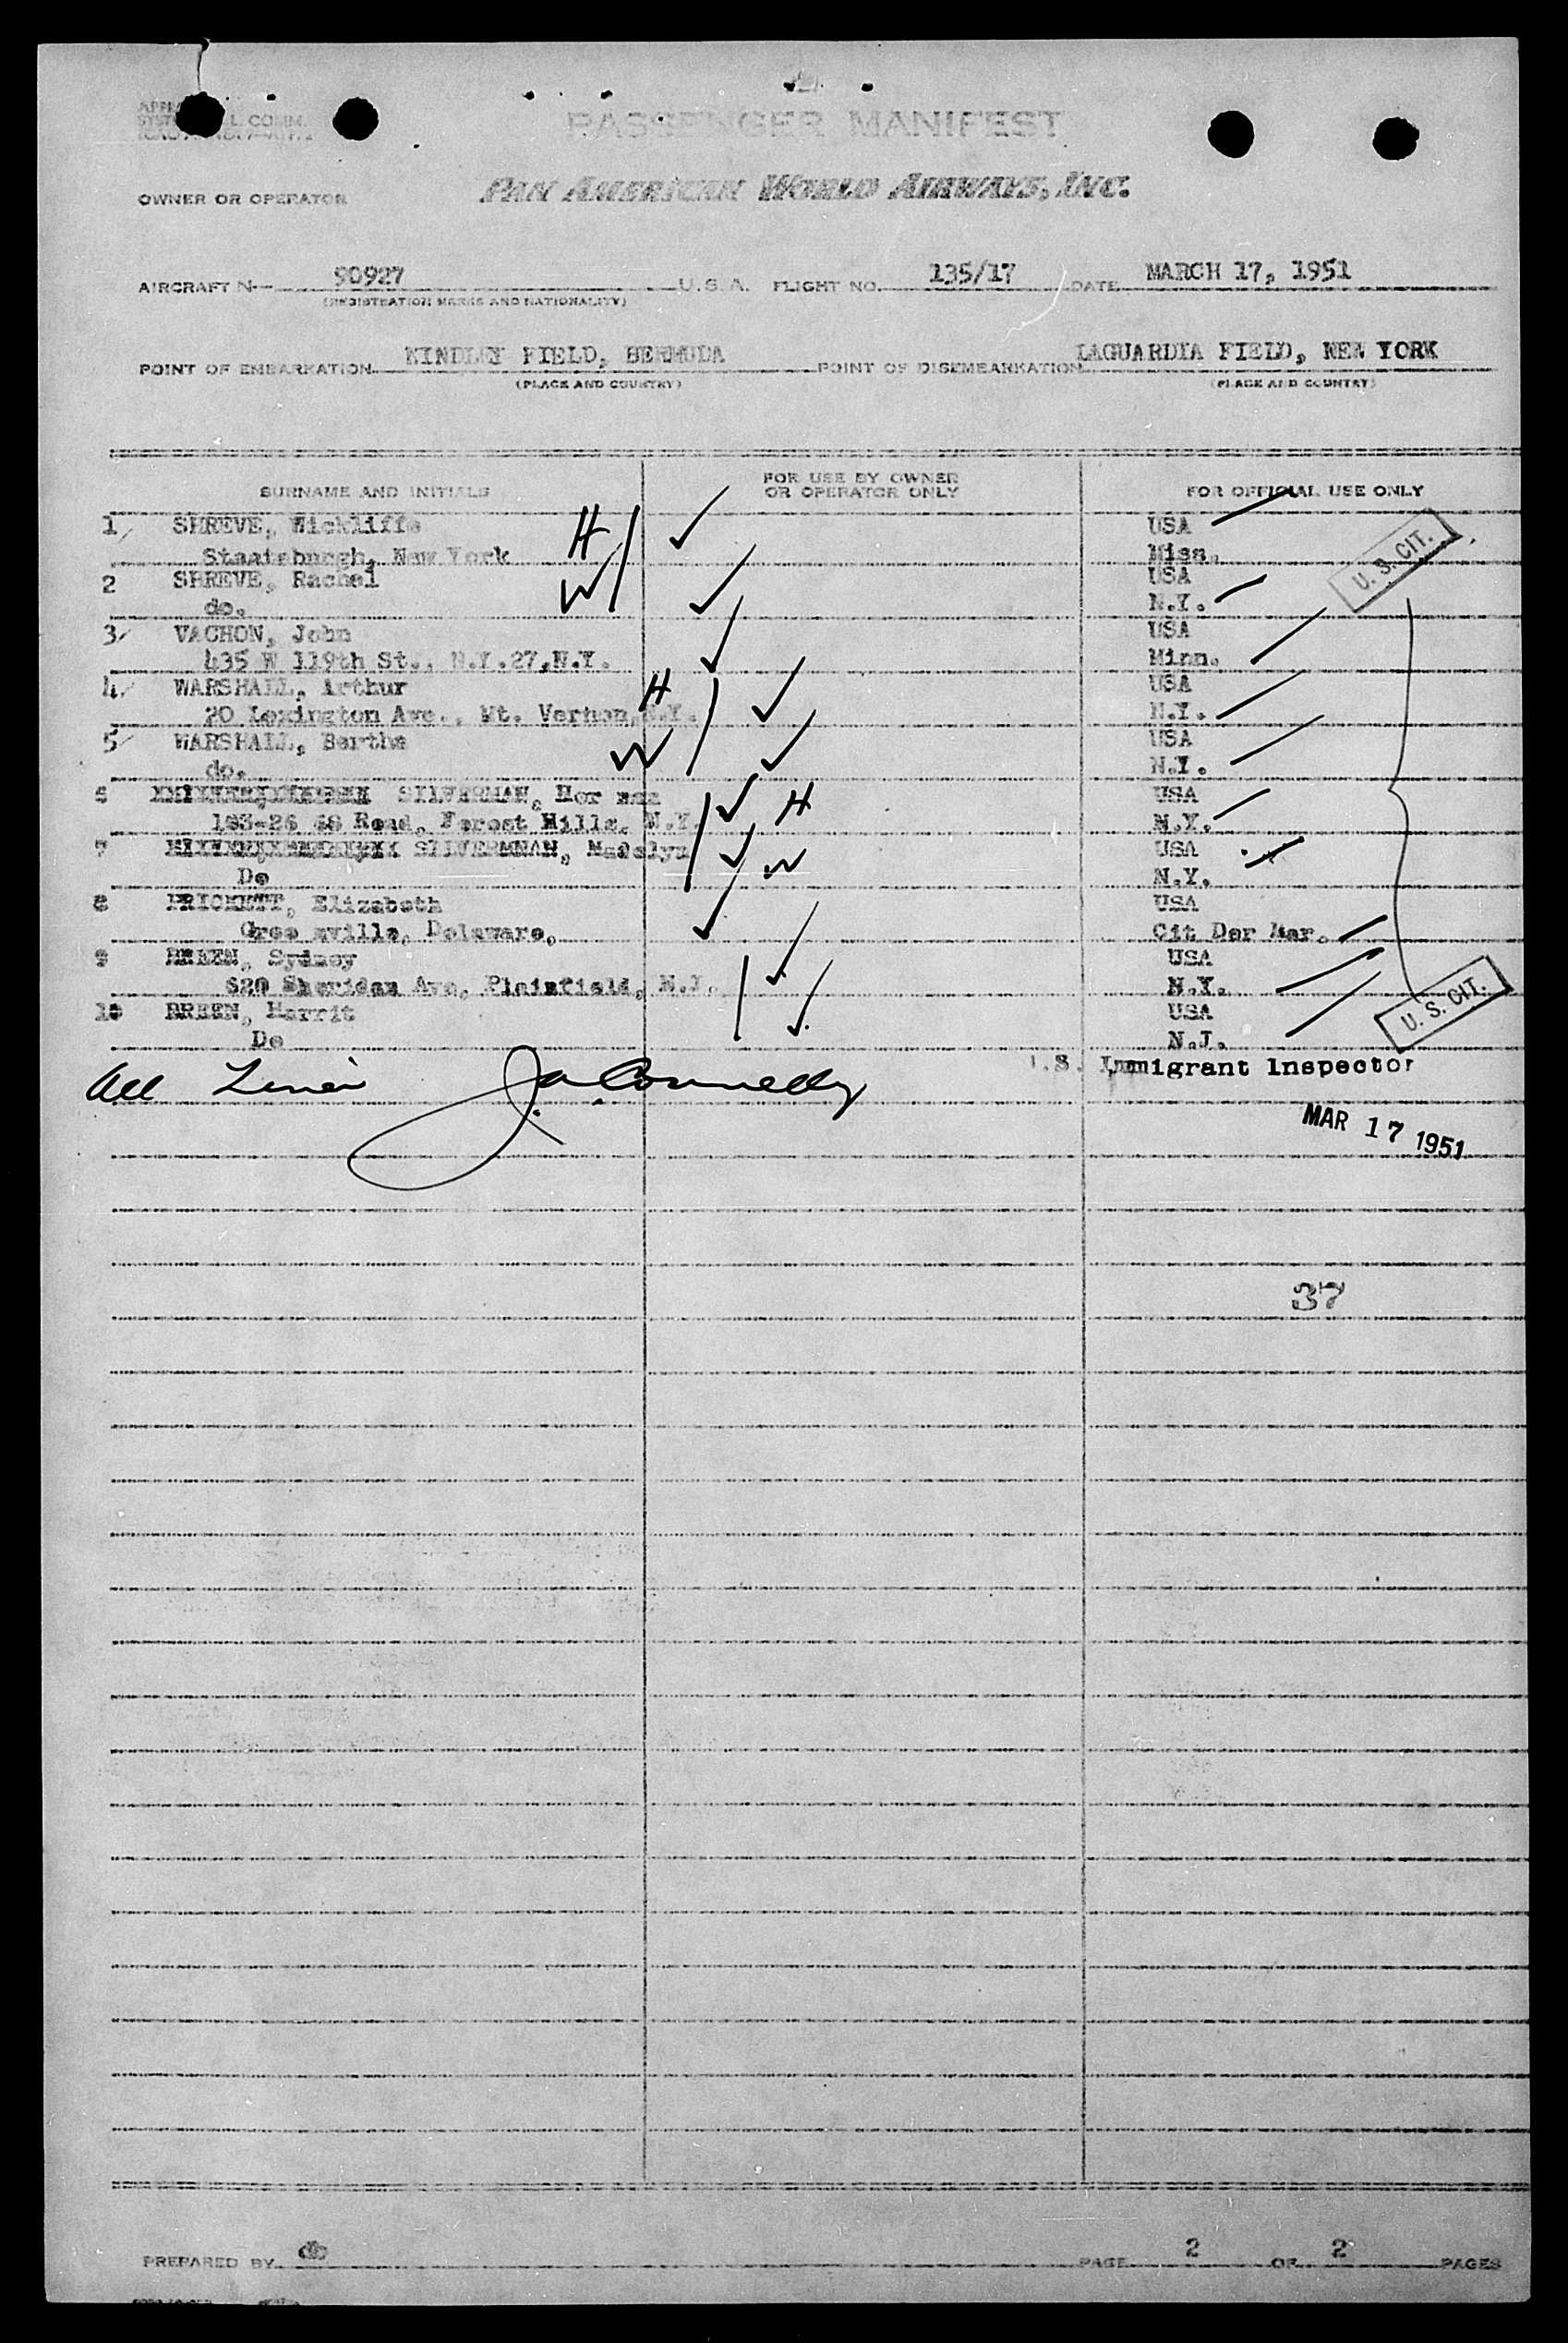 PASSENGER MANIFEST
OWNER OR OPERATOR PAN AMERICAN WORLD AIRWAYS, INC.
AIRCRAFT N— 90927 U.S.A. FLIGHT NO. 135/17 DATE MARCH 17, 1951
(REGISTRATION MARKS AND NATIONALITY)
POINT OF EMBARKATION KINDLEY FIELD, BERMUDA POINT OF DISEMBARKATION LAGUARDIA FIELD, NEW YORK
(PLACE AND COUNTRY) (PLACE AND COUNTRY)
SURNAME AND INITIALS FOR USE BY OWNER OR OPERATOR ONLY FOR OFFICIAL USE ONLY
1 SHREVE, Wickliffe H USA
Staatsburgh, New York Miss. U. S. CIT.
2 SHREVE, Rachel W USA
do. N.Y.
3 VACHON, John USA
435 W 119th St., N.Y.27,N.Y. Minn.
4 WARSHALL, Arthur H USA
20 Lexington Ave., Mt. Vernon, N.Y. N.Y.
5 WARSHALL, Bertha W USA
do. N.Y.
6 SILVERMAN, Her man H USA
Road, Forest Hills, N.Y. N.Y.
7 SILVERMNAN, Madelyn W USA
Do N.Y.
8 PRICKETT, Elizabeth USA
Gree nville, Delaware, Cit Der Mar.
9 BREEN, Sydney USA
620 Sheridan Ave, Plainfield, N.J. N.Y.
10 BREEN, Merrit USA
Do N.J. U. S. CIT.
All J. A. Connelly U.S. Immigrant Inspector
MAR 17 1951
37
PREPARED BY PAGE 2 OF 2 PAGES